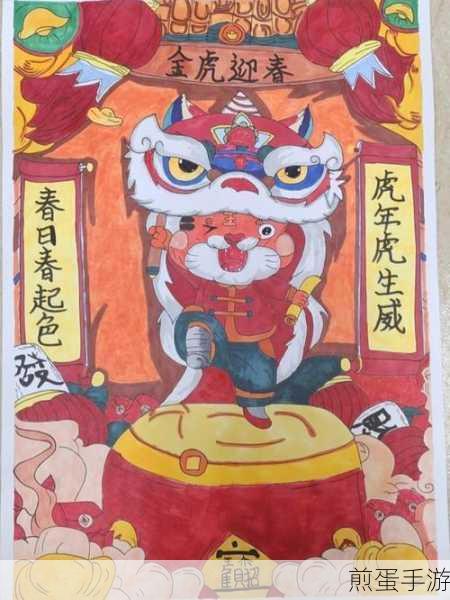 金虎迎春
虎年虎生威
春日春起色
發
煎蛋手游